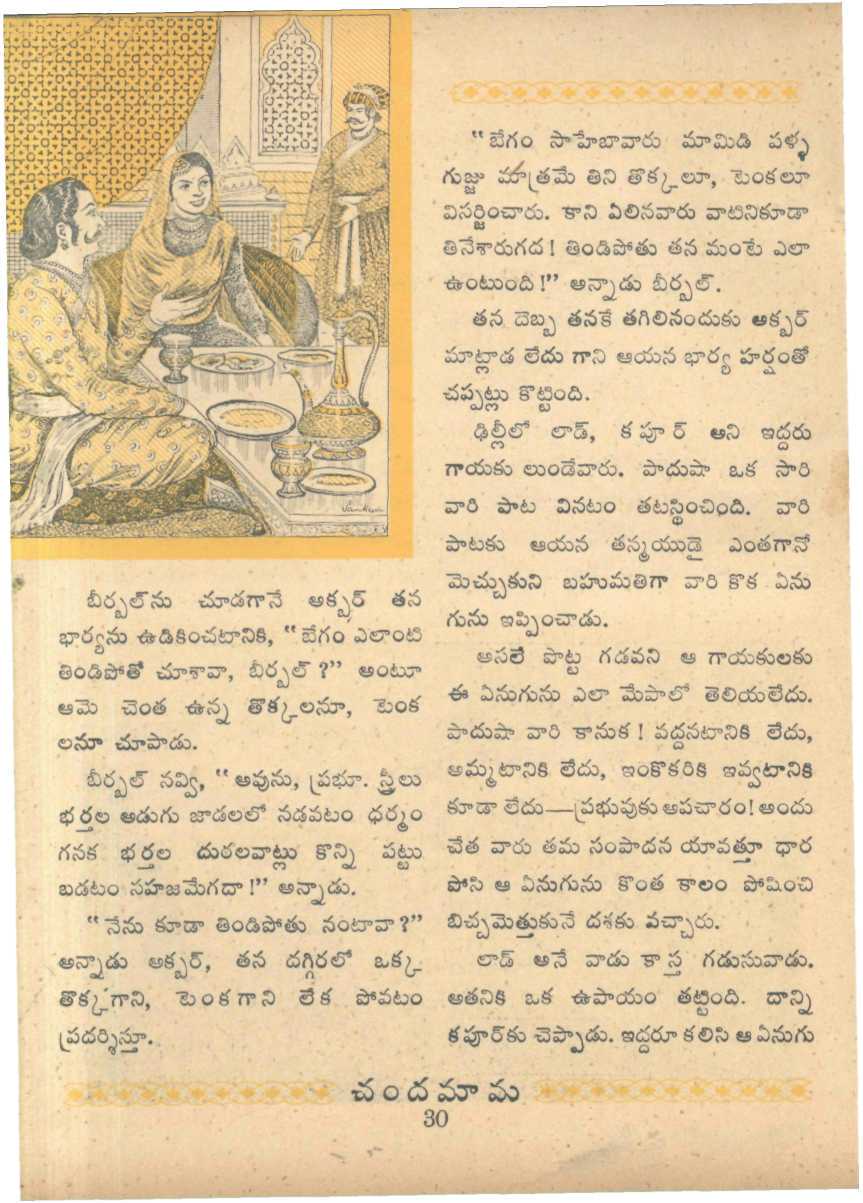 బీర్బల్‌ను చూడగానే అక్బర్ తన
భార్యను ఉడికించటానికి, “బేగం ఎలాంటి
తిండిపోతో చూశావా, బీర్బల్ ?” అంటూ
ఆమె చెంత ఉన్న తొక్కలనూ, టెంక
లనూ చూపాడు.
బీర్బల్ నవ్వి, “అవును, ప్రభూ. స్త్రీలు
భర్తల అడుగు జాడలలో నడవటం ధర్మం
గనక భర్తల దురలవాట్లు కొన్ని పట్టు
బడటం సహజమేగదా !” అన్నాడు.
“నేను కూడా తిండిపోతు నంటావా ?”
అన్నాడు అక్బర్, తన దగ్గిరలో ఒక్క
తొక్కగాని, టెంకగాని లేక పోవటం
ప్రదర్శిస్తూ.
“బేగం సాహేబావారు మామిడి పళ్ళ
గుజ్జు మాత్రమే తిని తొక్కలూ, టెంకలూ
విసర్జించారు. కాని ఏలినవారు వాటినికూడా
తినేశారుగద ! తిండిపోతు తన మంటే ఎలా
ఉంటుంది !” అన్నాడు బీర్బల్.
తన దెబ్బ తనకే తగిలినందుకు అక్బర్
మాట్లాడ లేదు గాని ఆయన భార్య హర్షంతో
చప్పట్లు కొట్టింది.
ఢిల్లీలో లాడ్, కపూర్ అని ఇద్దరు
గాయకు లుండేవారు. పాదుషా ఒక సారి
వారి పాట వినటం తటస్థించింది. వారి
పాటకు ఆయన తన్మయుడై ఎంతగానో
మెచ్చుకుని బహుమతిగా వారి కొక ఏను
గును ఇప్పించాడు.
అసలే పొట్ట గడవని ఆ గాయకులకు
ఈ ఏనుగును ఎలా మేపాలో తెలియలేదు.
పాదుషా వారి కానుక ! వద్దనటానికి లేదు,
అమ్మటానికి లేదు, ఇంకొకరికి ఇవ్వటానికి
కూడా లేదు—ప్రభువుకు అపచారం! అందు
చేత వారు తమ సంపాదన యావత్తూ ధార
పోసి ఆ ఏనుగును కొంత కాలం పోషించి
బిచ్చమెత్తుకునే దశకు వచ్చారు.
లాడ్ అనే వాడు కాస్త గడుసువాడు.
అతనికి ఒక ఉపాయం తట్టింది. దాన్ని
కపూర్‌కు చెప్పాడు. ఇద్దరూ కలిసి ఆ ఏనుగు
చందమామ
30